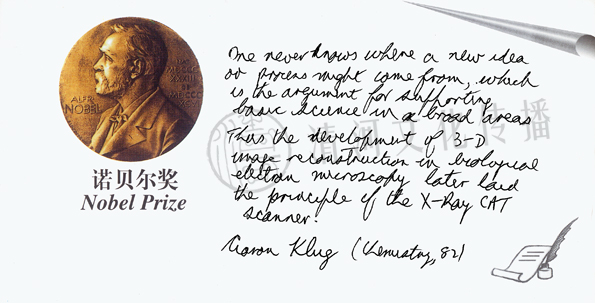 ALFR
NOBEL
诺贝尔奖
Nobel Prize
One never knows where a new idea
or process might come from, which
is the argument for supporting
basic science in a broad areas
Thus the development of 3-D
image reconstruction in biological
electron microscopy later laid
the principle of the X-Ray CAT
scanner.
Aaron Klug (Chemistry, 82)
文化传播